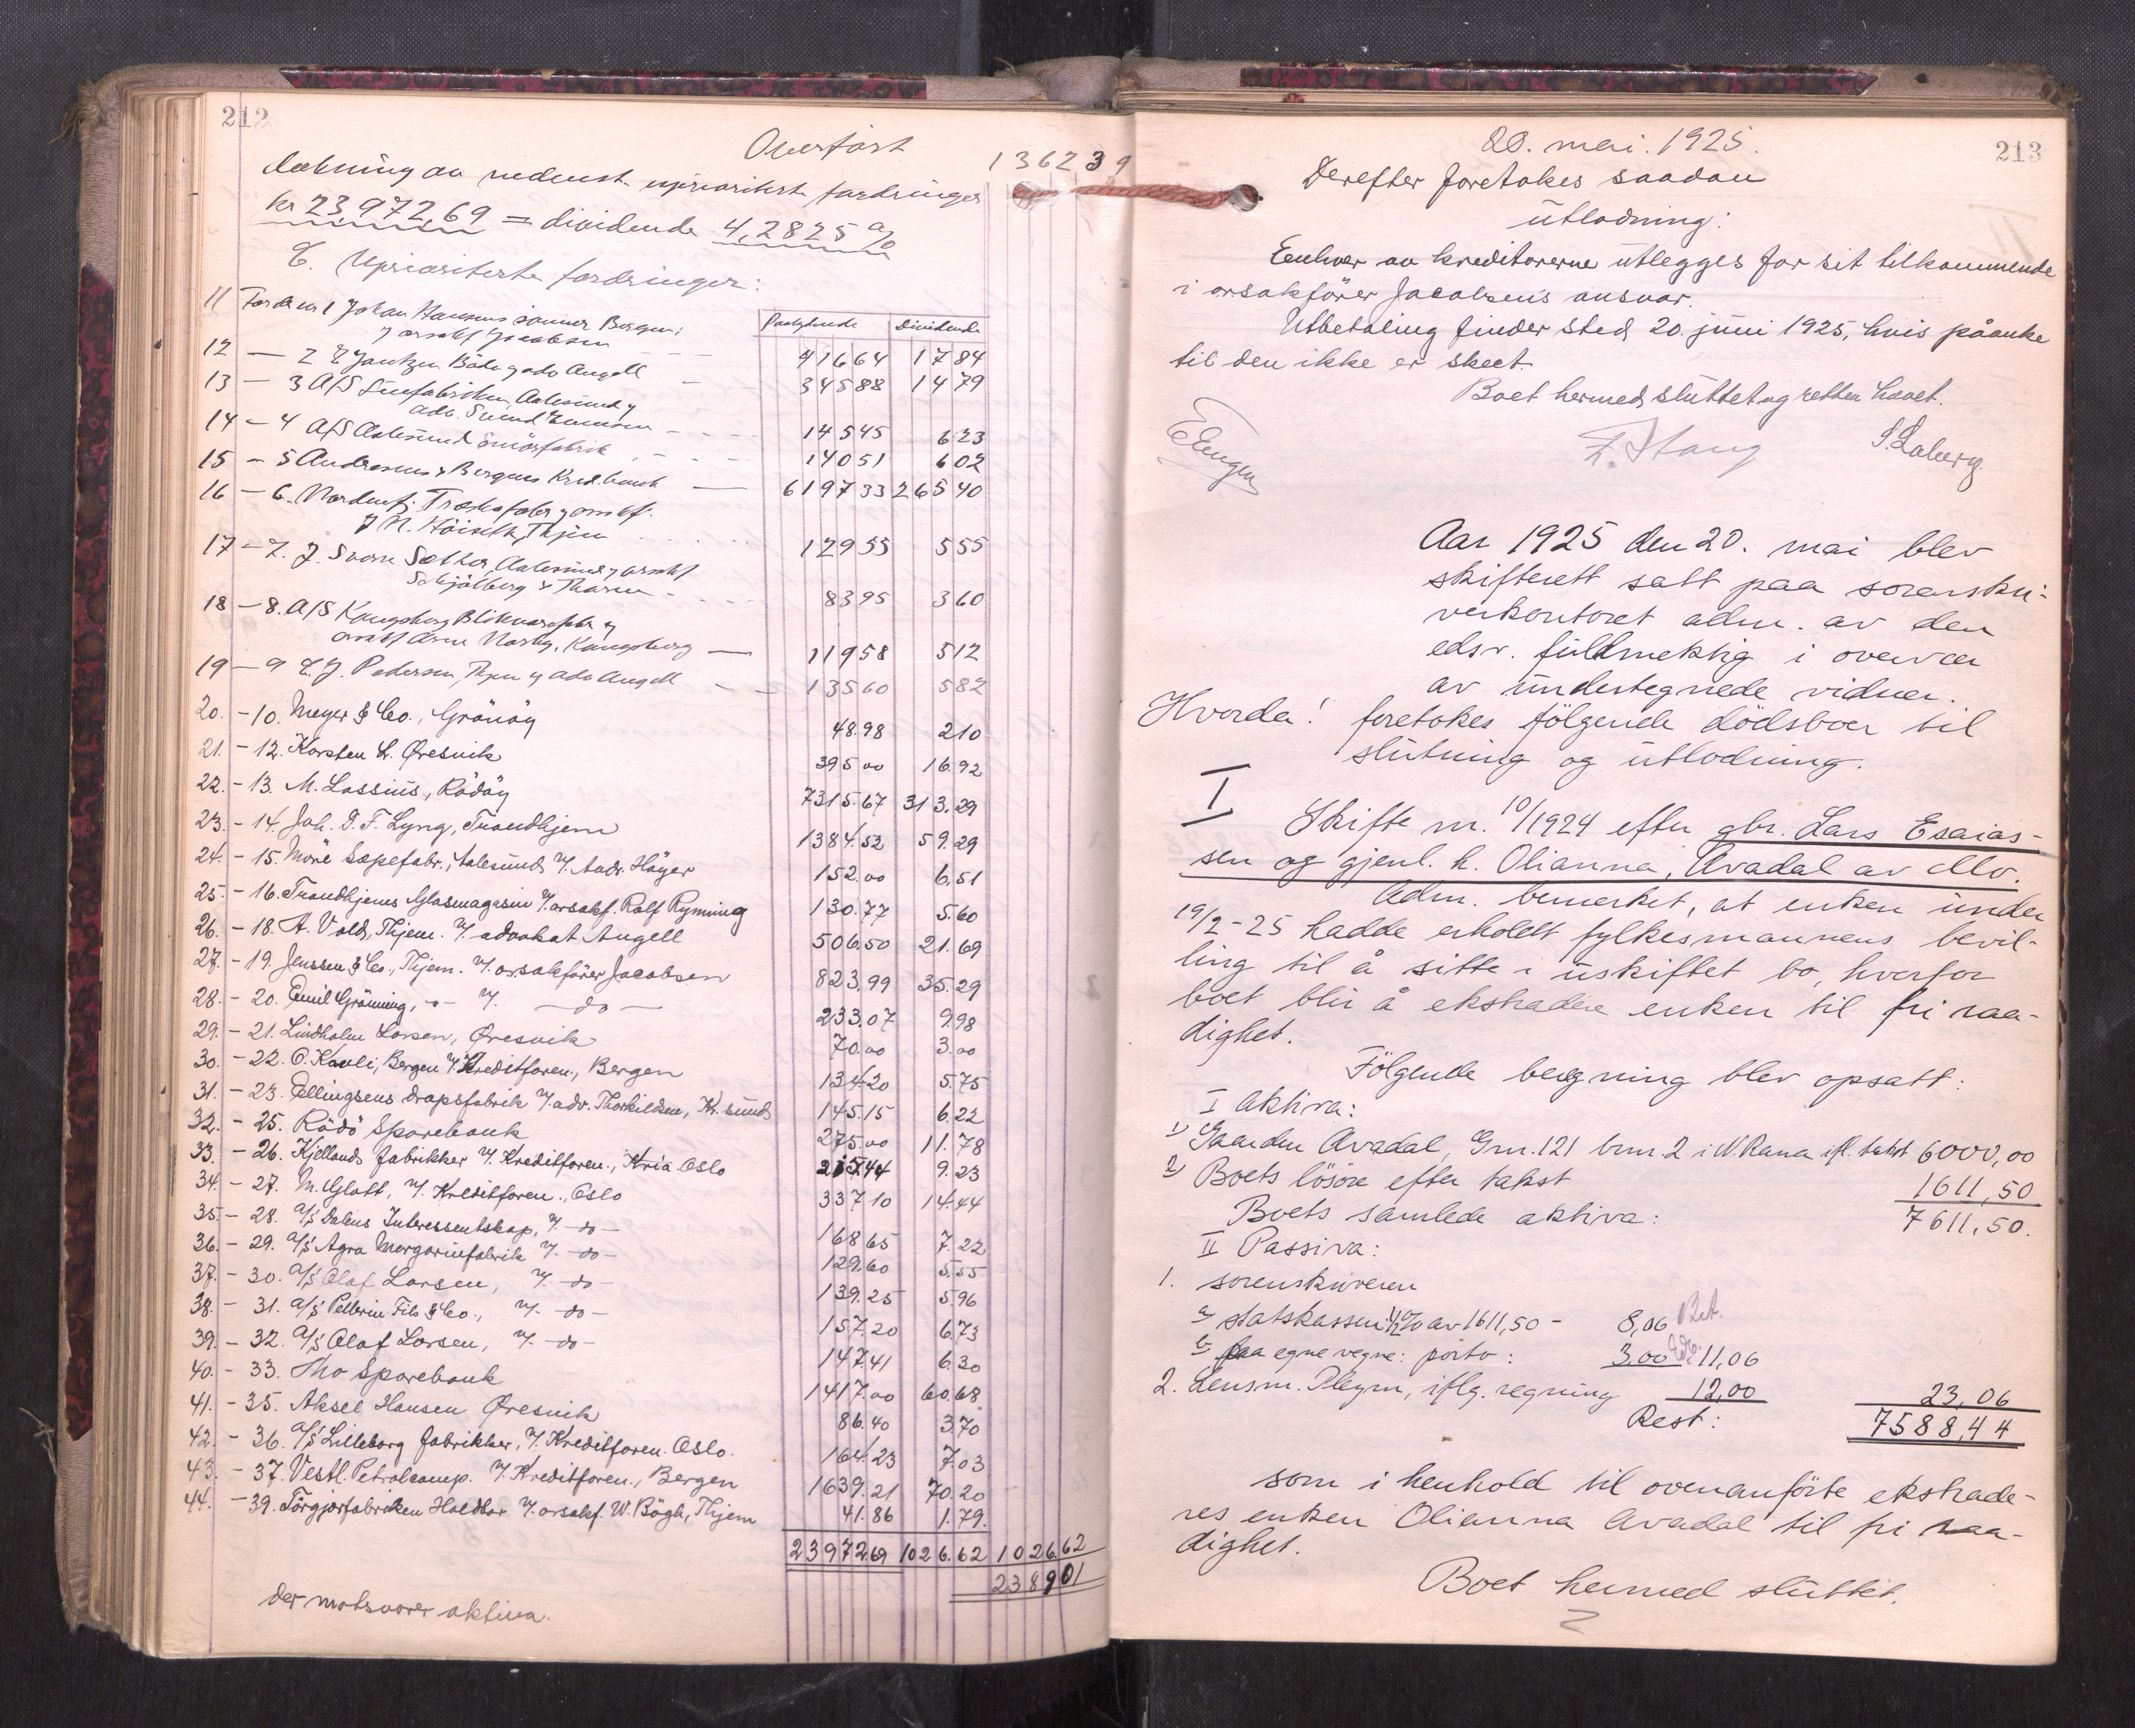 212
Overført 136239
dækning av nedenst. uprioriterte fordringer
kr 23,972,69 = dividende 4,2825 %
C. Uprioriterte fordringer:
Paalydende Dividende
11 Fordr nr 1 Johan Hansens sønner Bergen
v/ orsakf Jacobsen — 416 64 17 84
12 — 2 E Jantzen Bodø v/ adv Angell — 345 88 14 79
13 — 3 A/S Linefabriken Aalesund v/
adv. Svend - - - - 145 45 6 23
14 — 4 A/S Aalesund Smörfabrik - - - - 140 51 6 02
15 — 5 Andresens & Bergens Kred.bank — 6197 33 265 40
16 — 6. Nordenfj. Træskofabr v/ orsakf.
N. Höiseth, Thjem . . . . 129 55 5 55
17 — 7. J. Sverre Sæther, Aalesund v/ orsakf
Schjölberg & - - - 83 95 3 60
18 — 8. A/S Kongsberg Blikvarefabr v/
orsakf Arne Narby, Kongsberg — 119 58 5 12
19 — 9 E. J. Pedersen, Thjem v/ adv Angell — — 135 60 5 82
20. — 10. Meyer & Co., Grönöy 48.98 2 10
21. — 12. Karsten L. Øresvik 395 00 16.92
22. — 13. M. Lossius, Rödöy 7315.67 313.29
23. — 14. Joh. D. F. Lyng, Trondhjem 1384.52 59.29
24. — 15. Möre Sæpefabr., Aalesund V. Andr. Höyer 152.00 6.51
25. — 16. Trondhjems Glasmagasin V. orsakf. Rolf Ryming 130.77 5.60
26. — 18. A. Vold, Thjem. V. advokat Angell 506.50 21.69
27. — 19. Jenssen & Co., Thjem. V. orsakförer Jacobsen 823.99 35.29
28. — 20. Emil Grönning, -"- V. — do — 233.07 9.98
29. — 21. Lindholm Larsen, Øresvik 70.00 3.00
30. — 22. O. Kavli, Bergen V. Kreditforen., Bergen 134.20 5.75
31. — 23. Ellingsens Dropsfabrik V. adv. Thorkildsen, Kr.sund 145.15 6.22
32. — 25. Rödö Sparebank 275.00 11.78
33. — 26. Kjellands Fabrikker V. Kreditforen., Kria Oslo 215.44 9.23
34. — 27. M. Glott, V. Kreditforen., Oslo 337.10 14.44
35. — 28. A/S Dalens Interessentskap, V. — do — 168 65 7.22
36. — 29. A/S Agra Margarinfabrik V. — do — 129.60 5.55
37. — 30. A/S Olaf Larsen, V. — do — 139.25 5.96
38. — 31. A/S Pellerin Fils & Co., V. — do — 157.20 6.73
39. — 32. A/S Olaf Larsen, V. — do — 147.41 6.30
40. — 33. Mo Sparebank 1417.00 60.68
41. — 35. Aksel Hansen Øresvik 86.40 3.70
42. — 36. A/S Lilleborg Fabrikker, V. Kreditforen. Oslo. 164.23 7.03
43. — 37. Vestl. Petrolcomp. V. Kreditforen., Bergen 1639.21 70.20
44. — 39. Törgjærfabriken Haldkar V. orsakf. W. Bögh, Thjem 41.86 1.79.
23972.69 1026.62 1026.62
2389 01
der motsvarer aktiva.
213
20. mai. 1925.
Derefter foretokes saadan
utlodning:
Enhver av kreditorerne utlegges for sit tilkommende
i orsakförer Jacobsens ansvar.
Utbetaling finder sted 20. juni 1925, hvis påanke
til den ikke er skeet.
Boet hermed sluttet og retten hævet.
F. Stang S. Laberg
Aar 1925 den 20. mai blev
skifterett satt paa sorenskri-
verkontoret adm. av den
edsv. fuldmektig i overvær
av undertegnede vidner.
Hvorda! foretokes følgende dödsboer til
slutning og utlodning.
I
Skifte nr. 10/1924 efter gbr. Lars Esaias-
sen og gjenl. h. Olianna, Avadal av Mo.
Adm. bemerket, at enken under
19/2-25 hadde erholdt fylkesmannens bevil-
ling til å sitte i uskiftet bo, hvorfor
boet blir å ekstradere enken til fri raa-
dighet.
Følgende beregning blev opsatt:
I Aktiva:
1) Gaarden Avadal, Gnr. 121 bnr. 2 i N. Rana ifl. takst 6000,00
2) Boets lösöre efter takst 1611,50
Boets samlede aktiva: 7611,50.
II Passiva:
1. sorenskriveren
a) statskassen: 1/2% av 1611,50 — 8,06 Bet.
b) paa egne vegne: porto: 3,00 11,06
2. Lensm. Pleym, iflg. regning 12,00 23,06
Rest: 7588,44
som i henhold til ovenanförte ekstrade-
res enken Olianna Avadal til fri raa-
dighet.
Boet hermed sluttet.